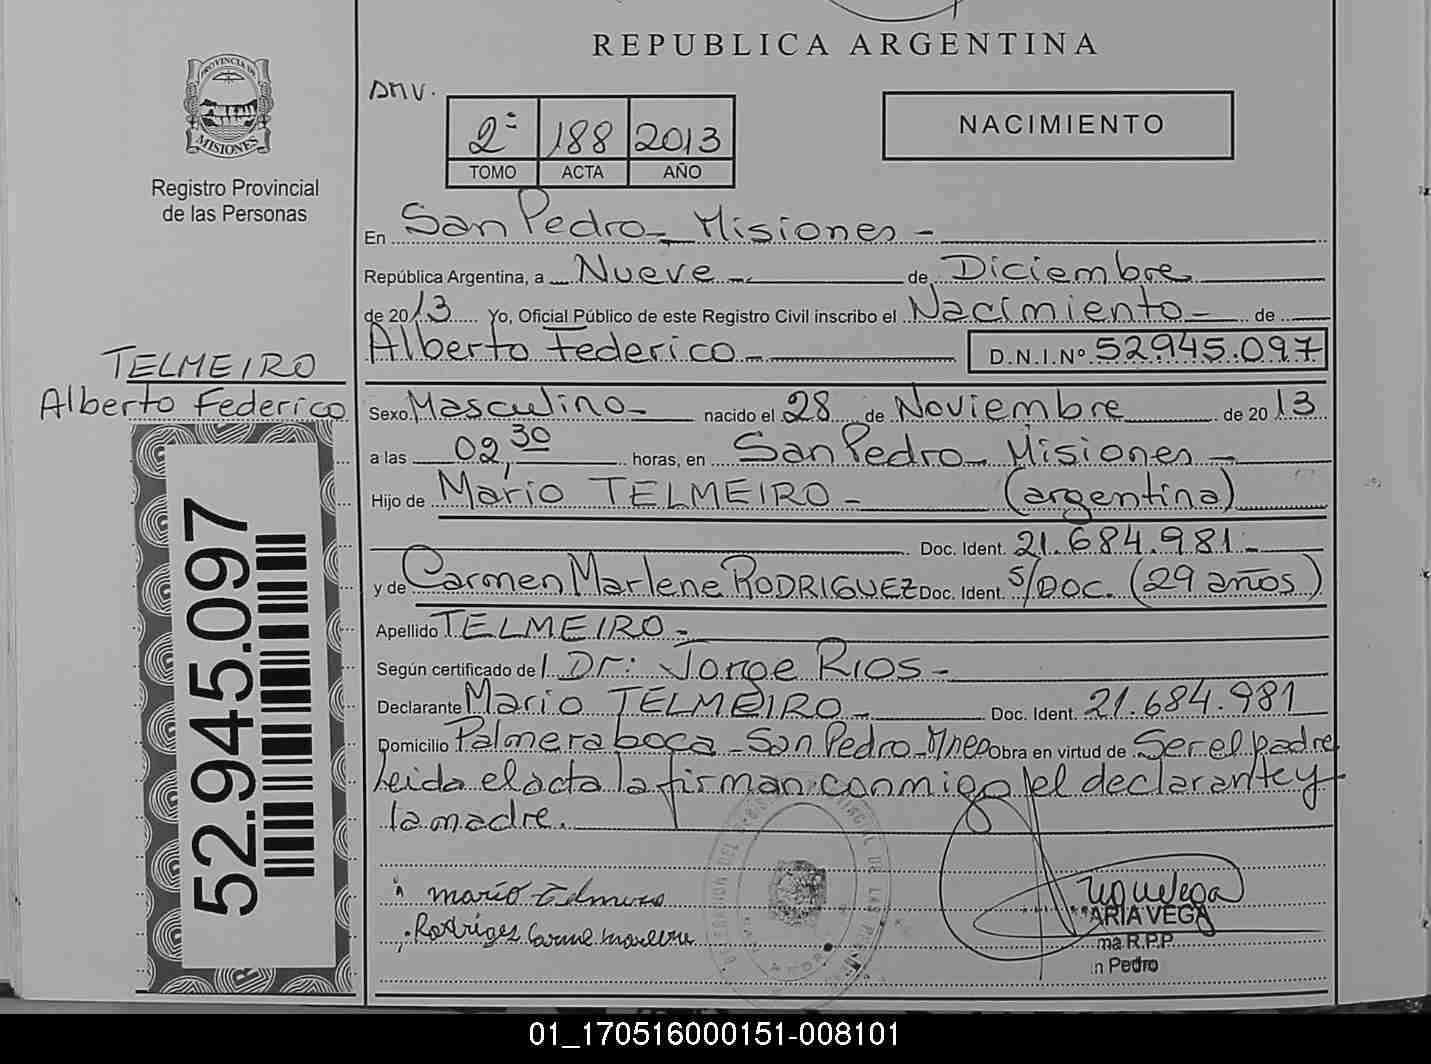 REPUBLICA ARGENTINA
PROVINCIA DE
MISIONES
Registro Provincial
de las Personas
2º 188 2013
TOMO ACTA AÑO
NACIMIENTO
En San Pedro - Misiones -
República Argentina, a Nueve - de Diciembre
de 2013 Yo, Oficial Público de este Registro Civil inscribo el Nacimiento - de
Alberto Federico - D.N.I.Nº 52.945.097
TELMEIRO
Alberto Federico
Sexo Masculino - nacido el 28 de Noviembre de 2013
a las 02,30 horas, en San Pedro - Misiones -
Hijo de Mario TELMEIRO - (argentina)
Doc. Ident. 21.684.981 -
y de Carmen Marlene RODRIGUEZ Doc. Ident. S/DOC. (29 años)
Apellido TELMEIRO -
Según certificado de l Dr: Jorge Rios -
Declarante Mario TELMEIRO - Doc. Ident. 21.684.981
Domicilio Palmera boca - San Pedro - Mnes Obra en virtud de Ser el padre
Leida el acta la firman conmigo el declarante y
la madre.
52.945.097
mario telmeiro
Rodrigez Carme marlene
ARIA VEGA
ma R.P.P
n Pedro
01_170516000151-008101